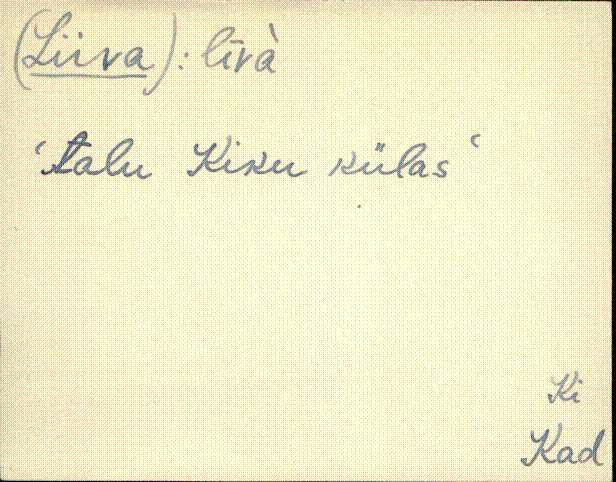 (Liiva): līvà
‘talu Kiku külas‘
Ki
Kad